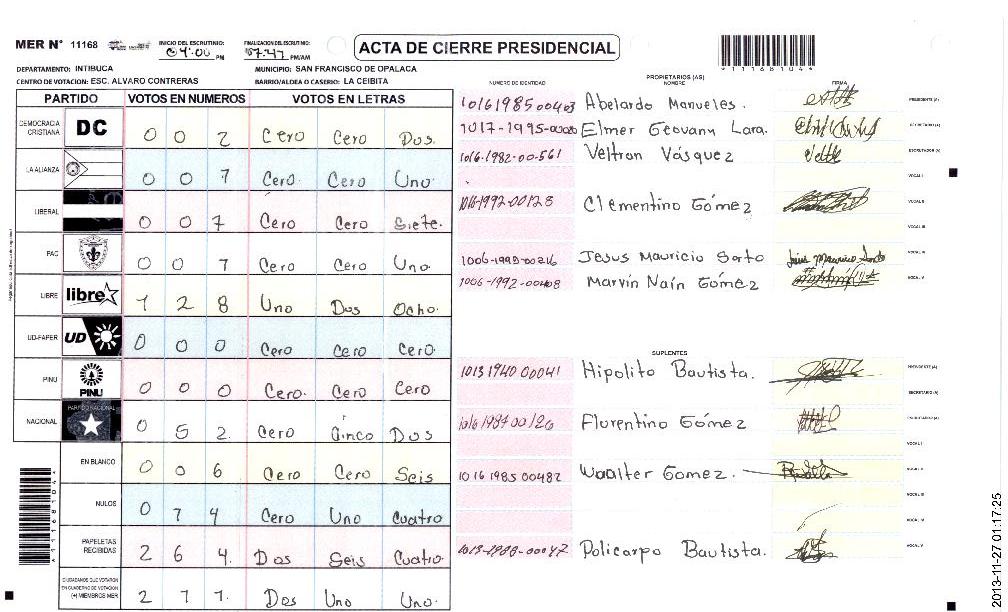 MER N° 11168
INICIO DEL ESCRUTINIO: 04:00 PM
FINALIZACION DEL ESCRUTINIO: 07:47 PM/AM
ACTA DE CIERRE PRESIDENCIAL
11168104
DEPARTAMENTO: INTIBUCA MUNICIPIO: SAN FRANCISCO DE OPALACA
CENTRO DE VOTACION: ESC. ALVARO CONTRERAS BARRIO/ALDEA O CASERIO: LA CEIBITA
PARTIDO VOTOS EN NUMEROS VOTOS EN LETRAS
DEMOCRACIA CRISTIANA DC 0 0 2 Cero Cero Dos.
LA ALIANZA 0 0 1 Cero. Cero Uno.
LIBERAL 0 0 7 Cero Cero Siete.
PAC 0 0 1 Cero Cero Uno.
LIBRE libre 1 2 8 Uno Dos Ocho.
UD-FAPER UD 0 0 0 Cero Cero Cero.
PINU PINU 0 0 0 Cero. Cero Cero
NACIONAL PARTIDO NACIONAL 0 5 2. Cero Cinco Dos
EN BLANCO 0 0 6 Cero Cero Seis
NULOS 0 1 4 Cero Uno Cuatro
PAPELETAS RECIBIDAS 2 6 4. Dos Seis Cuatro.
CIUDADANOS QUE VOTARON EN CUADERNO DE VOTACION (+) MIEMBROS MER 2 1 1. Dos Uno Uno.
11168104
PROPIETARIOS (AS)
NUMERO DE IDENTIDAD NOMBRE FIRMA
1016198500403 Abelardo Manueles. PRESIDENTE (A)
1017-1995-00020 Elmer Geovany Lara. SECRETARIO (A)
1016-1982-00-561 Veltron Vásquez ESCRUTADOR (A)
VOCAL I
1016-1992-00128 Clementino Gómez VOCAL II
VOCAL III
1006-1993-00216 Jesus Mauricio Sorto VOCAL IV
1006-1992-00408 Marvin Naín Gómez VOCAL V
SUPLENTES
1013 1940 00041 Hipolito Bautista. PRESIDENTE (A)
SECRETARIO (A)
1016 1987 00126 Florentino Gómez ESCRUTADOR (A)
VOCAL I
1016 1985 00482 Waalter Gomez. VOCAL II
VOCAL III
VOCAL IV
1013-1988-00047 Policarpo Bautista. VOCAL V
2013-11-27 01:17:25